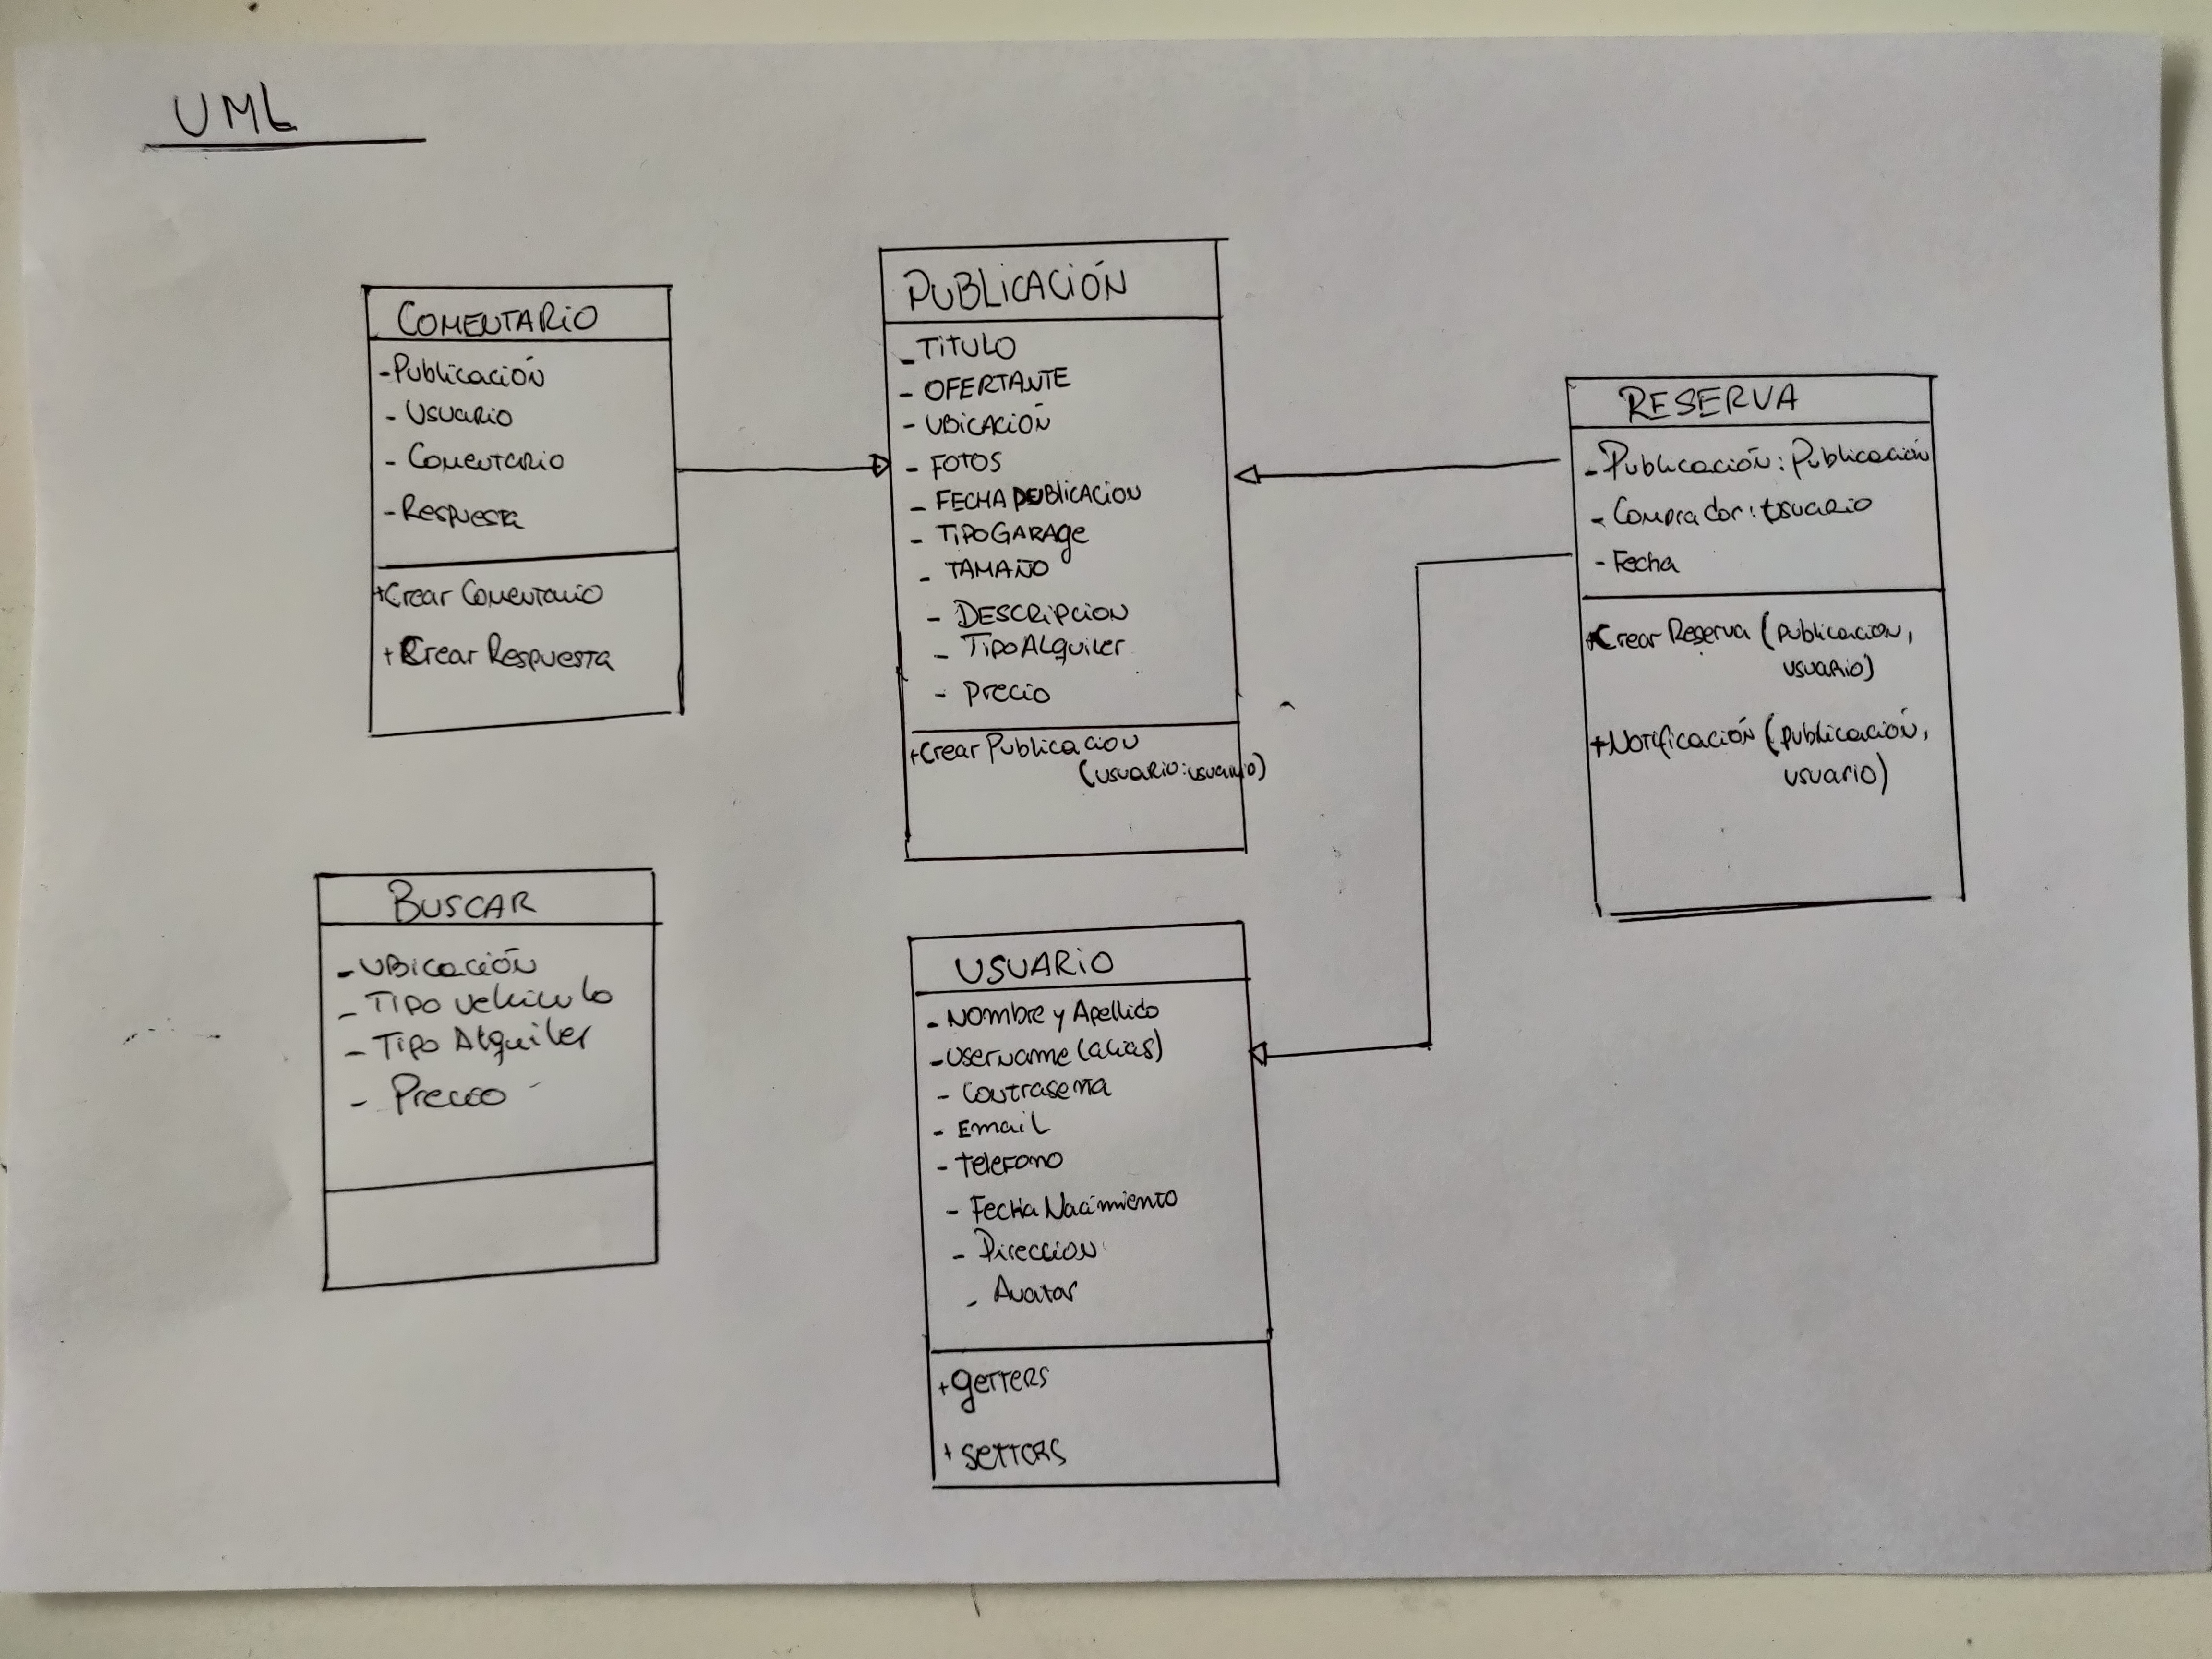 UML
COMENTARIO
-Publicación
- Usuario
- Comentario
-Respuesta
+Crear Comentario
+Crear Respuesta
PUBLICACIÓN
-TITULO
- OFERTANTE
- UBICACIÓN
- FOTOS
- FECHA PUBLICACION
- TIPOGARAGE
- TAMAÑO
- DESCRIPCION
- TIPOALQUILER
- PRECIO
+Crear Publicacion
(usuario:usuario)
RESERVA
-Publicación:Publicación
-Comprador:usuario
-Fecha
+Crear Reserva (publicacion,
usuario)
+Notificación (publicación,
usuario)
BUSCAR
-UBicación
- Tipo vehiculo
- Tipo Alquiler
- Precio
USUARIO
-Nombre y Apellido
-Username (alias)
- Contraseña
- Email
- Telefono
- Fecha Nacimiento
- Direccion
- Avatar
+getters
+setters